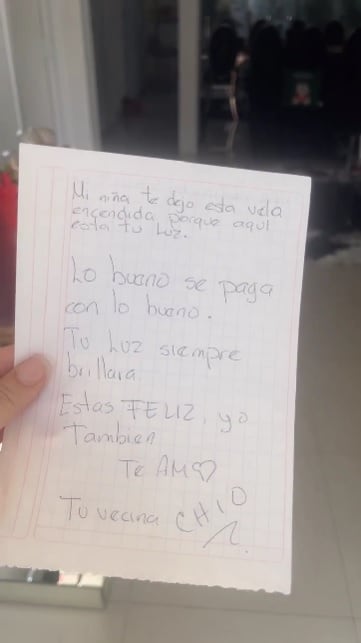 Mi niña te dejo esta vela
encendida porque aqui
esta tu Luz.
Lo bueno se paga
con lo bueno.
Tu Luz siempre
brillara
Estas FELIZ, yo
Tambien
Te AM♡
Tu vecina CHIO